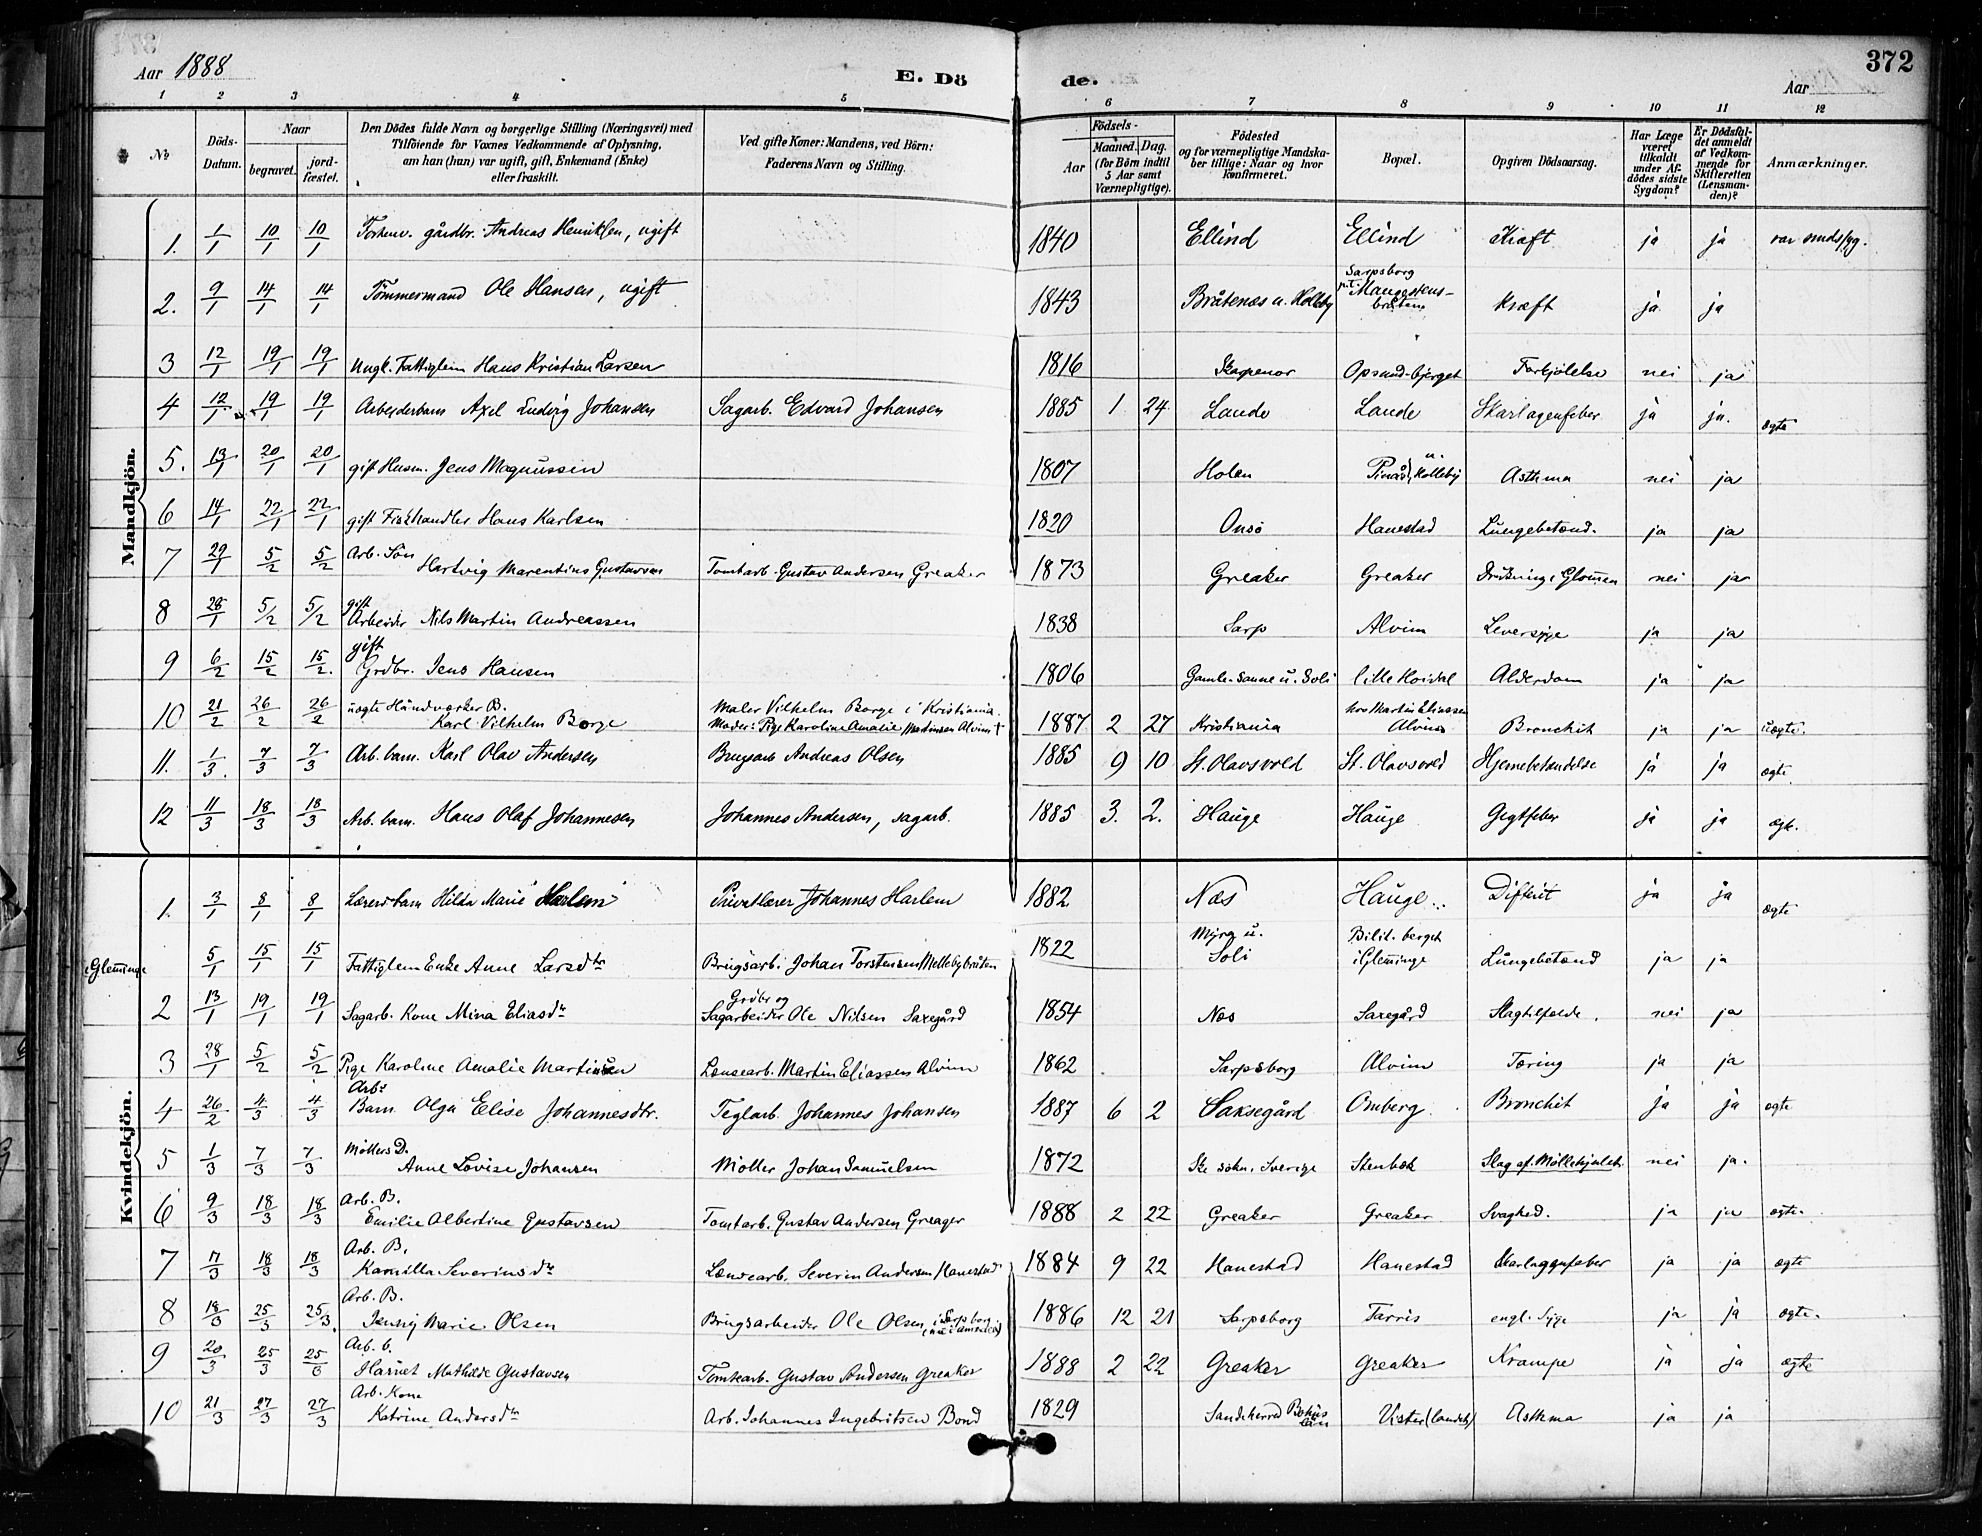 372
Aar 1888
E. Döde.
Aar
1 2 3 4 5 6 7 8 9 10 11 12
No
Döds-Datum.
Naar begravet. jordfæstet.
Den Dödes fulde Navn og borgerlige Stilling (Næringsvei) med Tilföiende for Voxnes Vedkommende af Oplysning, om han (hun) var ugift, gift, Enkemand (Enke) eller fraskilt.
Ved gifte Koner: Mandens, ved Börn: Faderens Navn og Stilling.
Födsels- Aar Maaned. Dag. (for Börn indtil 5 Aar samt Værnepligtige).
Födested og for værnepligtige Mandskaber tillige: Naar og hvor konfirmeret.
Bopæl.
Opgiven Dödsaarsag.
Har Læge været tilkaldt under Afdödes sidste Sygdom?
Er Dödsfaldet anmeldt af Vedkommende for Skifteretten (Lensmanden)?
Anmærkninger.
Mandkjön.
1. 1/1 10/1 10/1 Forhenv. gårdbr. Andreas Henriksen, ugift 1840 Ellind Ellind Kræft ja ja var sindssyg.
2. 9/1 14/1 14/1 Tömmermand Ole Hansen, ugift 1843 Bråtenæs u. Holleby Sarpsborg p.t. kræft ja ja
3 12/1 19/1 19/1 Ungk. Fattiglem Hans Kristian Larsen 1816 Kapenor Opsund-bjerget Forkjölelse nei ja
4 12/1 19/1 19/1 Arbeiderbarn Axel Ludvig Johansen Sagarb. Edvard Johansen 1885 1 24 Lande Lande Skarlagensfeber ja ja. ægte
5. 13/1 20/1 20/1 gift Husm. Jens Magnussen 1807 Holen u. Holleby Asthma nei ja
6 14/1 22/1 22/1 gift Fiskhandler Hans Karlsen 1820 Onsö Hanestad Lungebetænd. ja ja
7 29/1 5/2 5/2 Arb. Sön Hartvig Marentius Gustavsen Tomtarb. Gustav Andersen Greaker 1873 Greaker Greaker Drukning i Glommen nei ja
8 28/1 5/2 5/2 gift Arbeider Nils Martin Andreassen 1838 Sarp Alvim Leversyge ja ja
9 6/2 15/2 15/2. gift Grdbr. Jens Hansen 1806 Gamle Sanne u. Soli lille Hoidal Alderdom ja ja
10 21/2 26/2 26/2 uægte Håndværker B. Karl Vilhelm Borge Maler Vilhelm Borge i Kristiania. Moder: Pige Karoline Amalie Martinsen Alvim † 1887 2 27 Kristiania hos Martin Eliassen Alvim Bronchit ja ja uægte.
11. 1/3 7/3 7/3 Arb. barn. Karl Olav Andersen Brugsarb Andreas Olsen 1885 9 10 St. Olavsvold St. Olavsvold Hjernebetændelse ja ja ægte
12 11/3 18/3 18/3 Arb. barn. Hans Olaf Johannesen Johannes Andersen, sagarb. 1885 3. 2. Hauge Hauge Gigtfeber ja ja ægte.
Kvindekjön.
1. 3/1 8/1 8/1 Lærersbarn Hilda Marie Harlem Privatlærer Johannes Harlem 1882 Næs Hauge Difterit ja ja ægte
i Glemminge 5/1 15/1 15/1 Fattiglem Enke Anne Larsdtr Brugsarb. Johan Torstensen Mollebybråten 1822 Myra u. Soli Bilit. berget i Glemminge Lungebetænd ja ja
2 13/1 19/1 19/1 Sagarb. Kone Mina Eliasdtr Grdbr og Sagarbeider Ole Nilsen Saxegård 1854 Næs Saxegård Slagtilfælde. nei ja
3 28/1 5/2 5/2 Pige Karoline Amalie Martinsen Lænsearb. Martin Eliassen Alvim 1862 Sarpsborg Alvim Tæring ja ja
4 26/2 4/3 4/3 Arb. Barn Olga Elise Johannesdtr. Teglarb. Johannes Johansen 1887 6 2 Saksegård Omberg. Bronchit ja ja ægte
5 1/3 7/3 7/3 Möllers D. Anne Lovise Johansen Möller Johan Samuelsen 1872 Ske sokn. Sverige Stenbæk Slag af Möllehjulet. nei ja.
6 9/3 18/3 18/3 Arb. B. Emilie Albertine Gustavsen Tomtarb. Gustav Andersen Greager 1888 2 22 Greaker Greaker Svaghed. ja ja ægte.
7 17/3 18/3 18/3 Arb. B. Kamilla Severinsdtr Lændsearb. Severin Andersen Hanestad 1884 9 22 Hanestad Hanestad Skarlagensfeber ja ja ægte
8 18/3 25/3 25/3. Arb. B. Jenny Marie Olsen Brugsarbeider Ole Olsen, i Sarpsborg (nu i Amerika) 1886 12 21 Sarpsborg Tarris engl. Syge ja ja ægte.
9 20/3 25/3 25/3 Arb. b. Harriet Mathilde Gustavsen Tomtearb. Gustav Andersen Greaker 1888 2 22 Greaker Greaker Krampe ja ja ægte
10 21/3 27/3 27/3 Arb. Kone Katrine Andersdtr Arb. Johannes Ingebritsen Bond 1829 Sandeherred Bohus län Vister (landet) Asthma ja ja